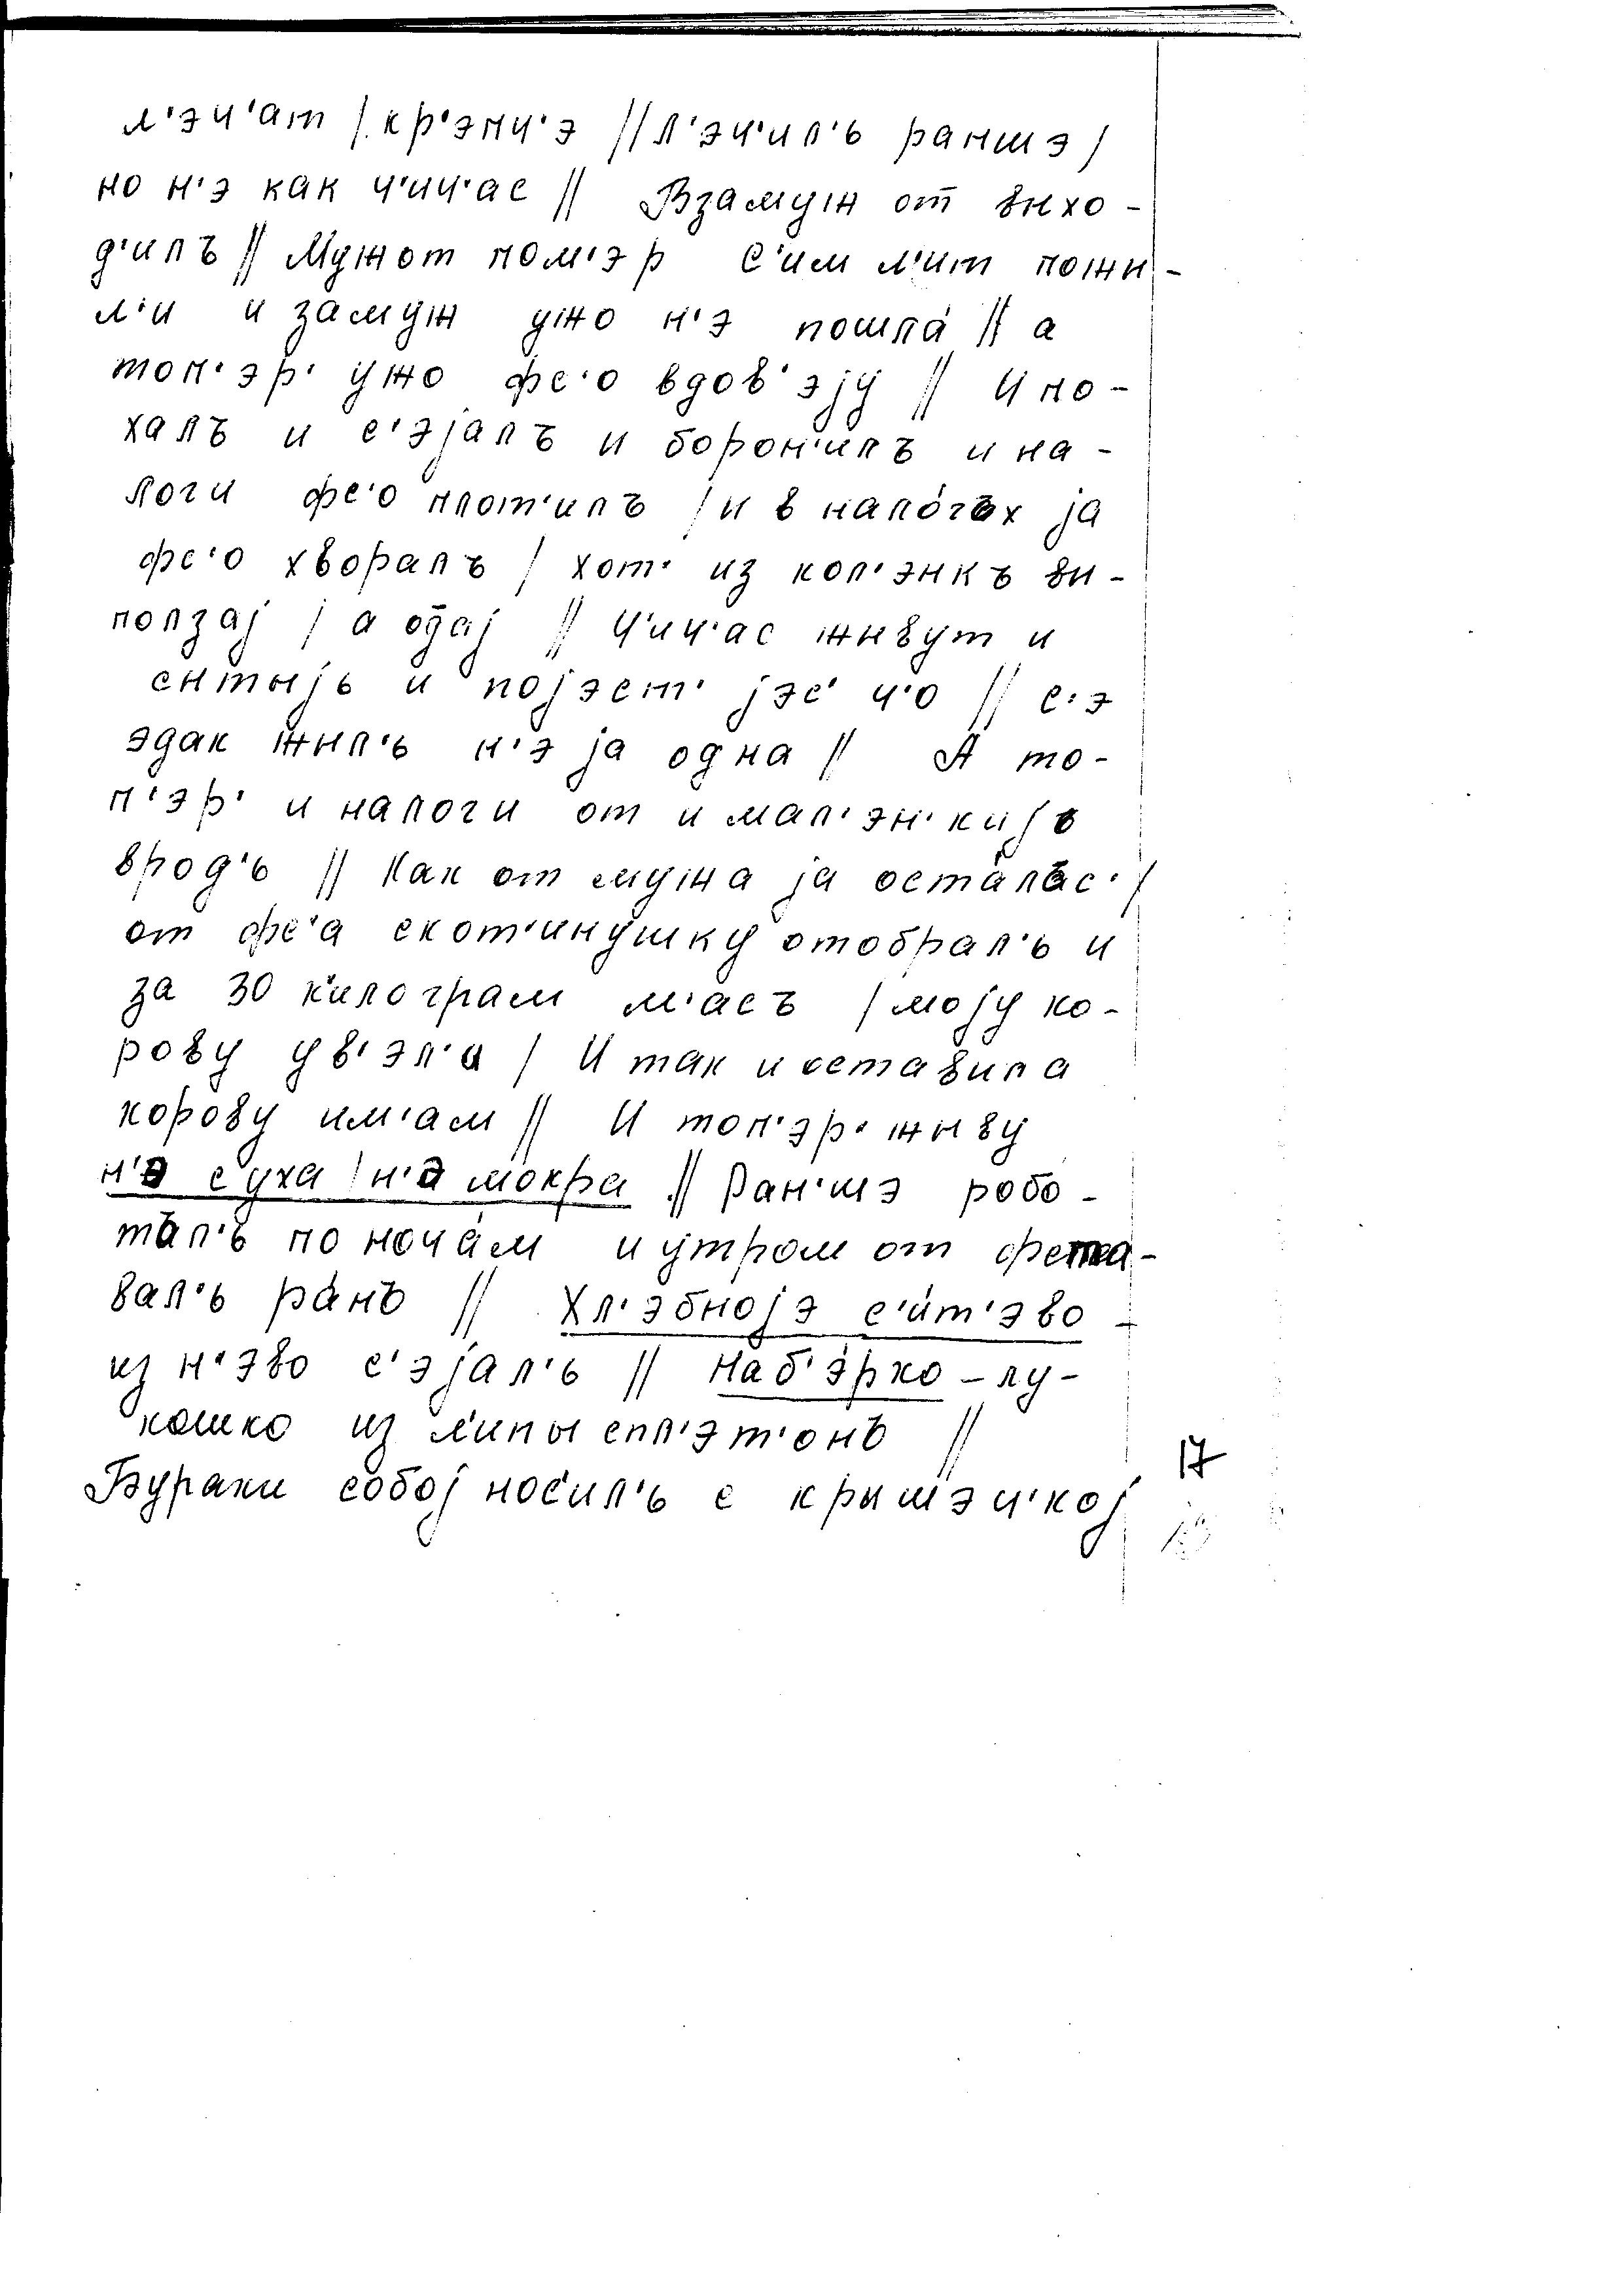 л'эч'ат / кр'эпч'э // л'эч'ил'ь раншэ /
но н'э как ч'ич'ас // Взамуж от выхо-
д'илъ // Мужот пом'эр с'им л'ит пожы-
л'и и замуж ужо н'э пошла́ // а
топ'эр' ужо фс'о вдов'эjу // И по-
халъ и с'эjалъ и борон'илъ и на-
логи фс'о плот'илъ / и в нало́гъх jа
фс'о хворалъ / хот' из кол'энкъ вы-
ползаj / а о̄даj // Ч'ич'ас жывут и
сытыjь и поjэст' jэс' ч'о // с'э
эдак жыл'ь н'э jа одна // А то-
п'эр' и налоги от и мал'эн'киjь
врод'ь // Как от мужа jа оста́лъс' /
от фс'а скот'инушку отобрал'ь и
за 30 к'илограм м'асъ / моjу ко-
рову ув'эл'и / И так и оставила
корову им'ам // И топ'эр' жыву
н'э суха / н'э мокра // Ран'шэ робо-
тъл'ь по ноча́м и у́тром от фста-
вал'ь ра́нъ // Хл'эбноjэ с'и́т'эво -
из н'эво с'эjал'ь // Наб'э́рко - лу-
кошко из л'ипы спл'эт'онъ //
Бураки собоj нос'ил'ь с крышэч'коj
17